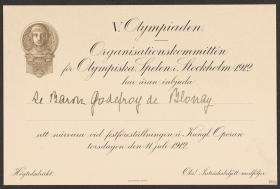 V. Olympiaden.
Organisationskommittén
för Olympiska Spelen i Stockholm 1912
har äran inbjuda
Le Baron Godefroy de Blonay
att närvara vid festföreställningen å Kungl. Operan
torsdagen den 11 juli 1912.
Högtidsdräkt. Obs! Inträdesbiljett medföljer.